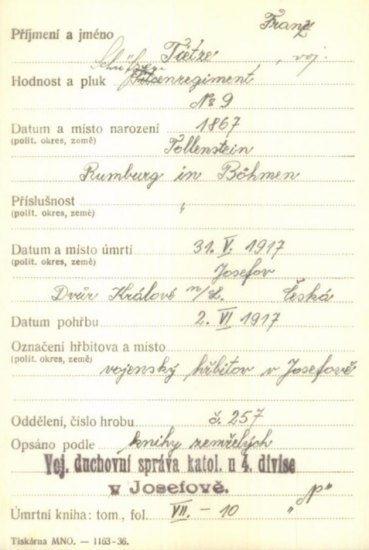 Franz
Příjmení a jméno Tietze, voj.
Hodnost a pluk Schützenregiment
№ 9
Datum a místo narození 1867
(polit. okres, země) Tollenstein
Rumburg in Böhmen
Příslušnost
(polit. okres, země)
Datum a místo úmrtí 31. V. 1917
(polit. okres, země) Josefov
Dvůr Králové n/L. Česká
Datum pohřbu 2. VI 1917
Označení hřbitova a místo
(polit. okres, země) vojenský hřbitov v Josefově
Oddělení, číslo hrobu č. 257
Opsáno podle knihy zemřelých
Voj. duchovní správa katol. u 4. divise
v Josefově.
Úmrtní kniha: tom, fol. VII. — 10 „N“
Tiskárna MNO. — 1163-36.